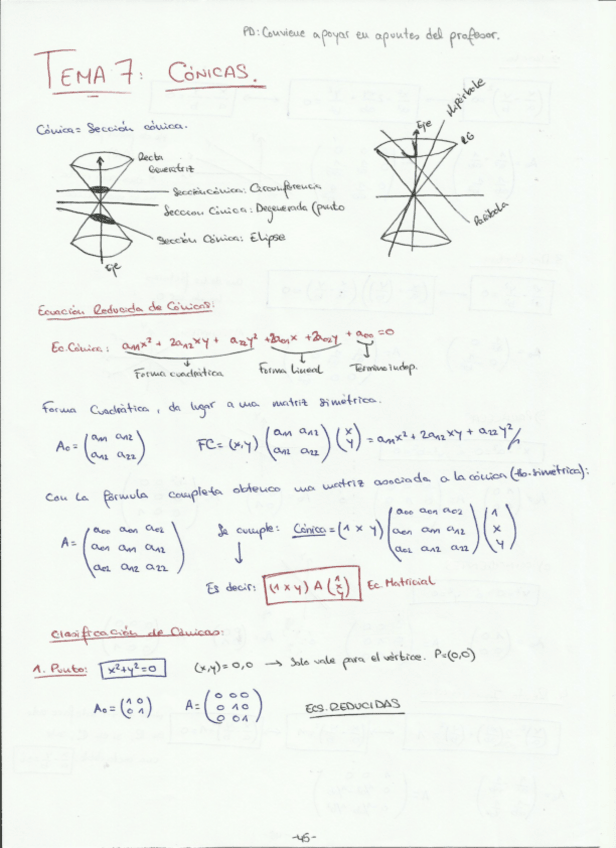 PD: Conviene apoyar en apuntes del profesor.
TEMA 7: CÓNICAS.
Cónica = Sección cónica.
Recta
Generatriz
Sección Cónica: Circunferencia
Sección Cónica: Degenerada (punto
Sección Cónica: Elipse
Eje
Eje
Hipérbole
RG
Parábola
Ecuación Reducida de Cónicas:
Ec. Cónica: a₁₁x² + 2a₁₂xy + a₂₂y² + 2a₀₁x + 2a₀₂y + a₀₀ = 0
Forma cuadrática Forma Lineal Término Indep.
Forma Cuadrática, da lugar a una matriz simétrica.
A₀ = (a₁₁ a₁₂ / a₁₂ a₂₂) FC = (x,y) (a₁₁ a₁₂ / a₁₂ a₂₂) (x / y) = a₁₁x² + 2a₁₂xy + a₂₂y²//
Con la fórmula completa obtenco una matriz asociada a la cónica (simétrica):
A = (a₀₀ a₀₁ a₀₂ / a₀₁ a₁₁ a₁₂ / a₀₂ a₁₂ a₂₂) Se cumple: Cónica = (1 x y) (a₀₀ a₀₁ a₀₂ / a₀₁ a₁₁ a₁₂ / a₀₂ a₁₂ a₂₂) (1 / x / y)
Es decir: (1 x y) A (1 / x / y) Ec. Matricial
Clasificación de Cónicas:
1. Punto: x²+y²=0 (x,y)=0,0 → Solo vale para el vértice. P=(0,0)
A₀ = (1 0 / 0 1) A = (0 0 0 / 0 1 0 / 0 0 1) ECS. REDUCIDAS
-46-